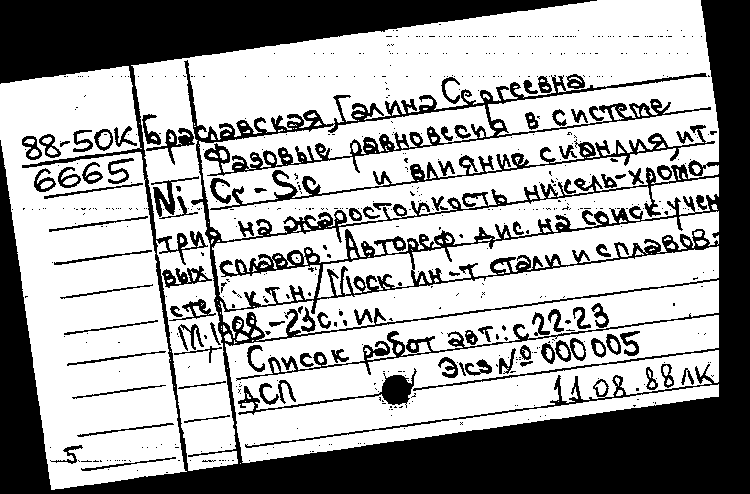 88-50К
6665
Браславская, Галина Сергеевна.
Фазовые равновесия в системе
Ni-Cr-Sc и влияние скандия, ит-
трия на жаростойкость никель-хромо-
вых сплавов: Автореф. дис. на соиск. учен
степ. к.т.н. / Моск. ин-т стали и сплавов.-
М., 1988.-23с.: ил.
Список работ авт.: с.22-23
Экз № 000005
ДСП
11.08.88 ЛК
5